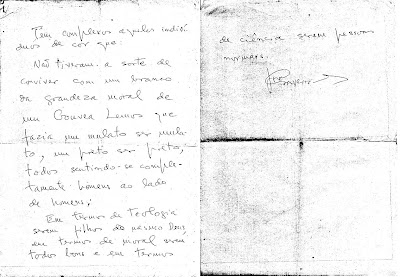 Tem complexos aqueles indiví
duos de cor que:
Não tiveram a sorte de
conviver com um branco
da grandeza moral de
um Gouvea Lemos que
fazia um mulato ser mula-
to, um preto ser preto,
todos sentindo-se comple-
tamente homens ao lado
de homens;
Em termos de Teologia
serem filhos do mesmo Deus,
em termos de moral serem
todos bons e em termos
de ciência serem pessoas
normais.